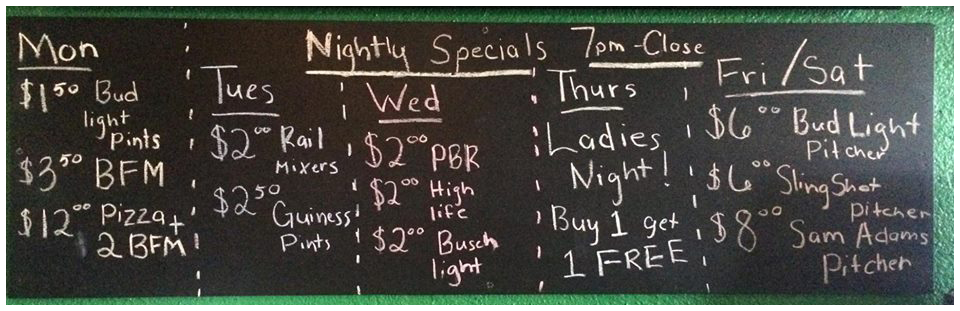 Nightly Specials 7pm-Close
Mon
$1.50 Bud
light
Pints
$3.50 BFM
$12.00 Pizza +
2 BFM
Tues
$2.00 Rail
Mixers
$2.50
Guiness
Pints
Wed
$2.00 PBR
$2.00 High
life
$2.00 Busch
light
Thurs
Ladies
Night!
Buy 1 get
1 FREE
Fri/Sat
$6.00 Bud Light
Pitcher
$6.00 SlingShot
pitcher
$8.00 Sam Adams
pitcher